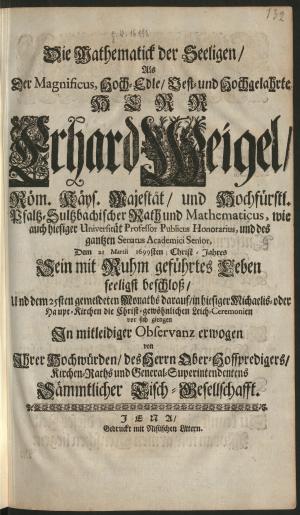 132
Die Mathematick der Seeligen/
Als
Der Magnificus, Hoch-Edle/ Vest- und Hochgelahrte
HERR
Erhard Weigel/
Röm. Käys. Majestät/ und Hochfürstl.
Pfaltz-Sultzbachischer Rath und Mathematicus, wie
auch hiesiger Universität Professor Publicus Honorarius, und des
gantzen Senatus Academici Senior,
Dem 21 Martii 1699sten Christ-Jahres
Sein mit Ruhm geführtes Leben
seeligst beschloß/
Und dem 25sten gemeldeten Monaths darauf/ in hiesiger Michaelis- oder
Haupt-Kirchen die Christ-gewöhnlichen Leich-Ceremonien
vor sich giengen
In mitleidiger Observanz erwogen
von
Ihrer Hochwürden/ des Herrn Ober-Hoffpredigers/
Kirchen-Raths und General-Superintendentens
Sämmtlicher Tisch-Gesellschafft.
JENA/
Gedruckt mit Nisischen Littern.